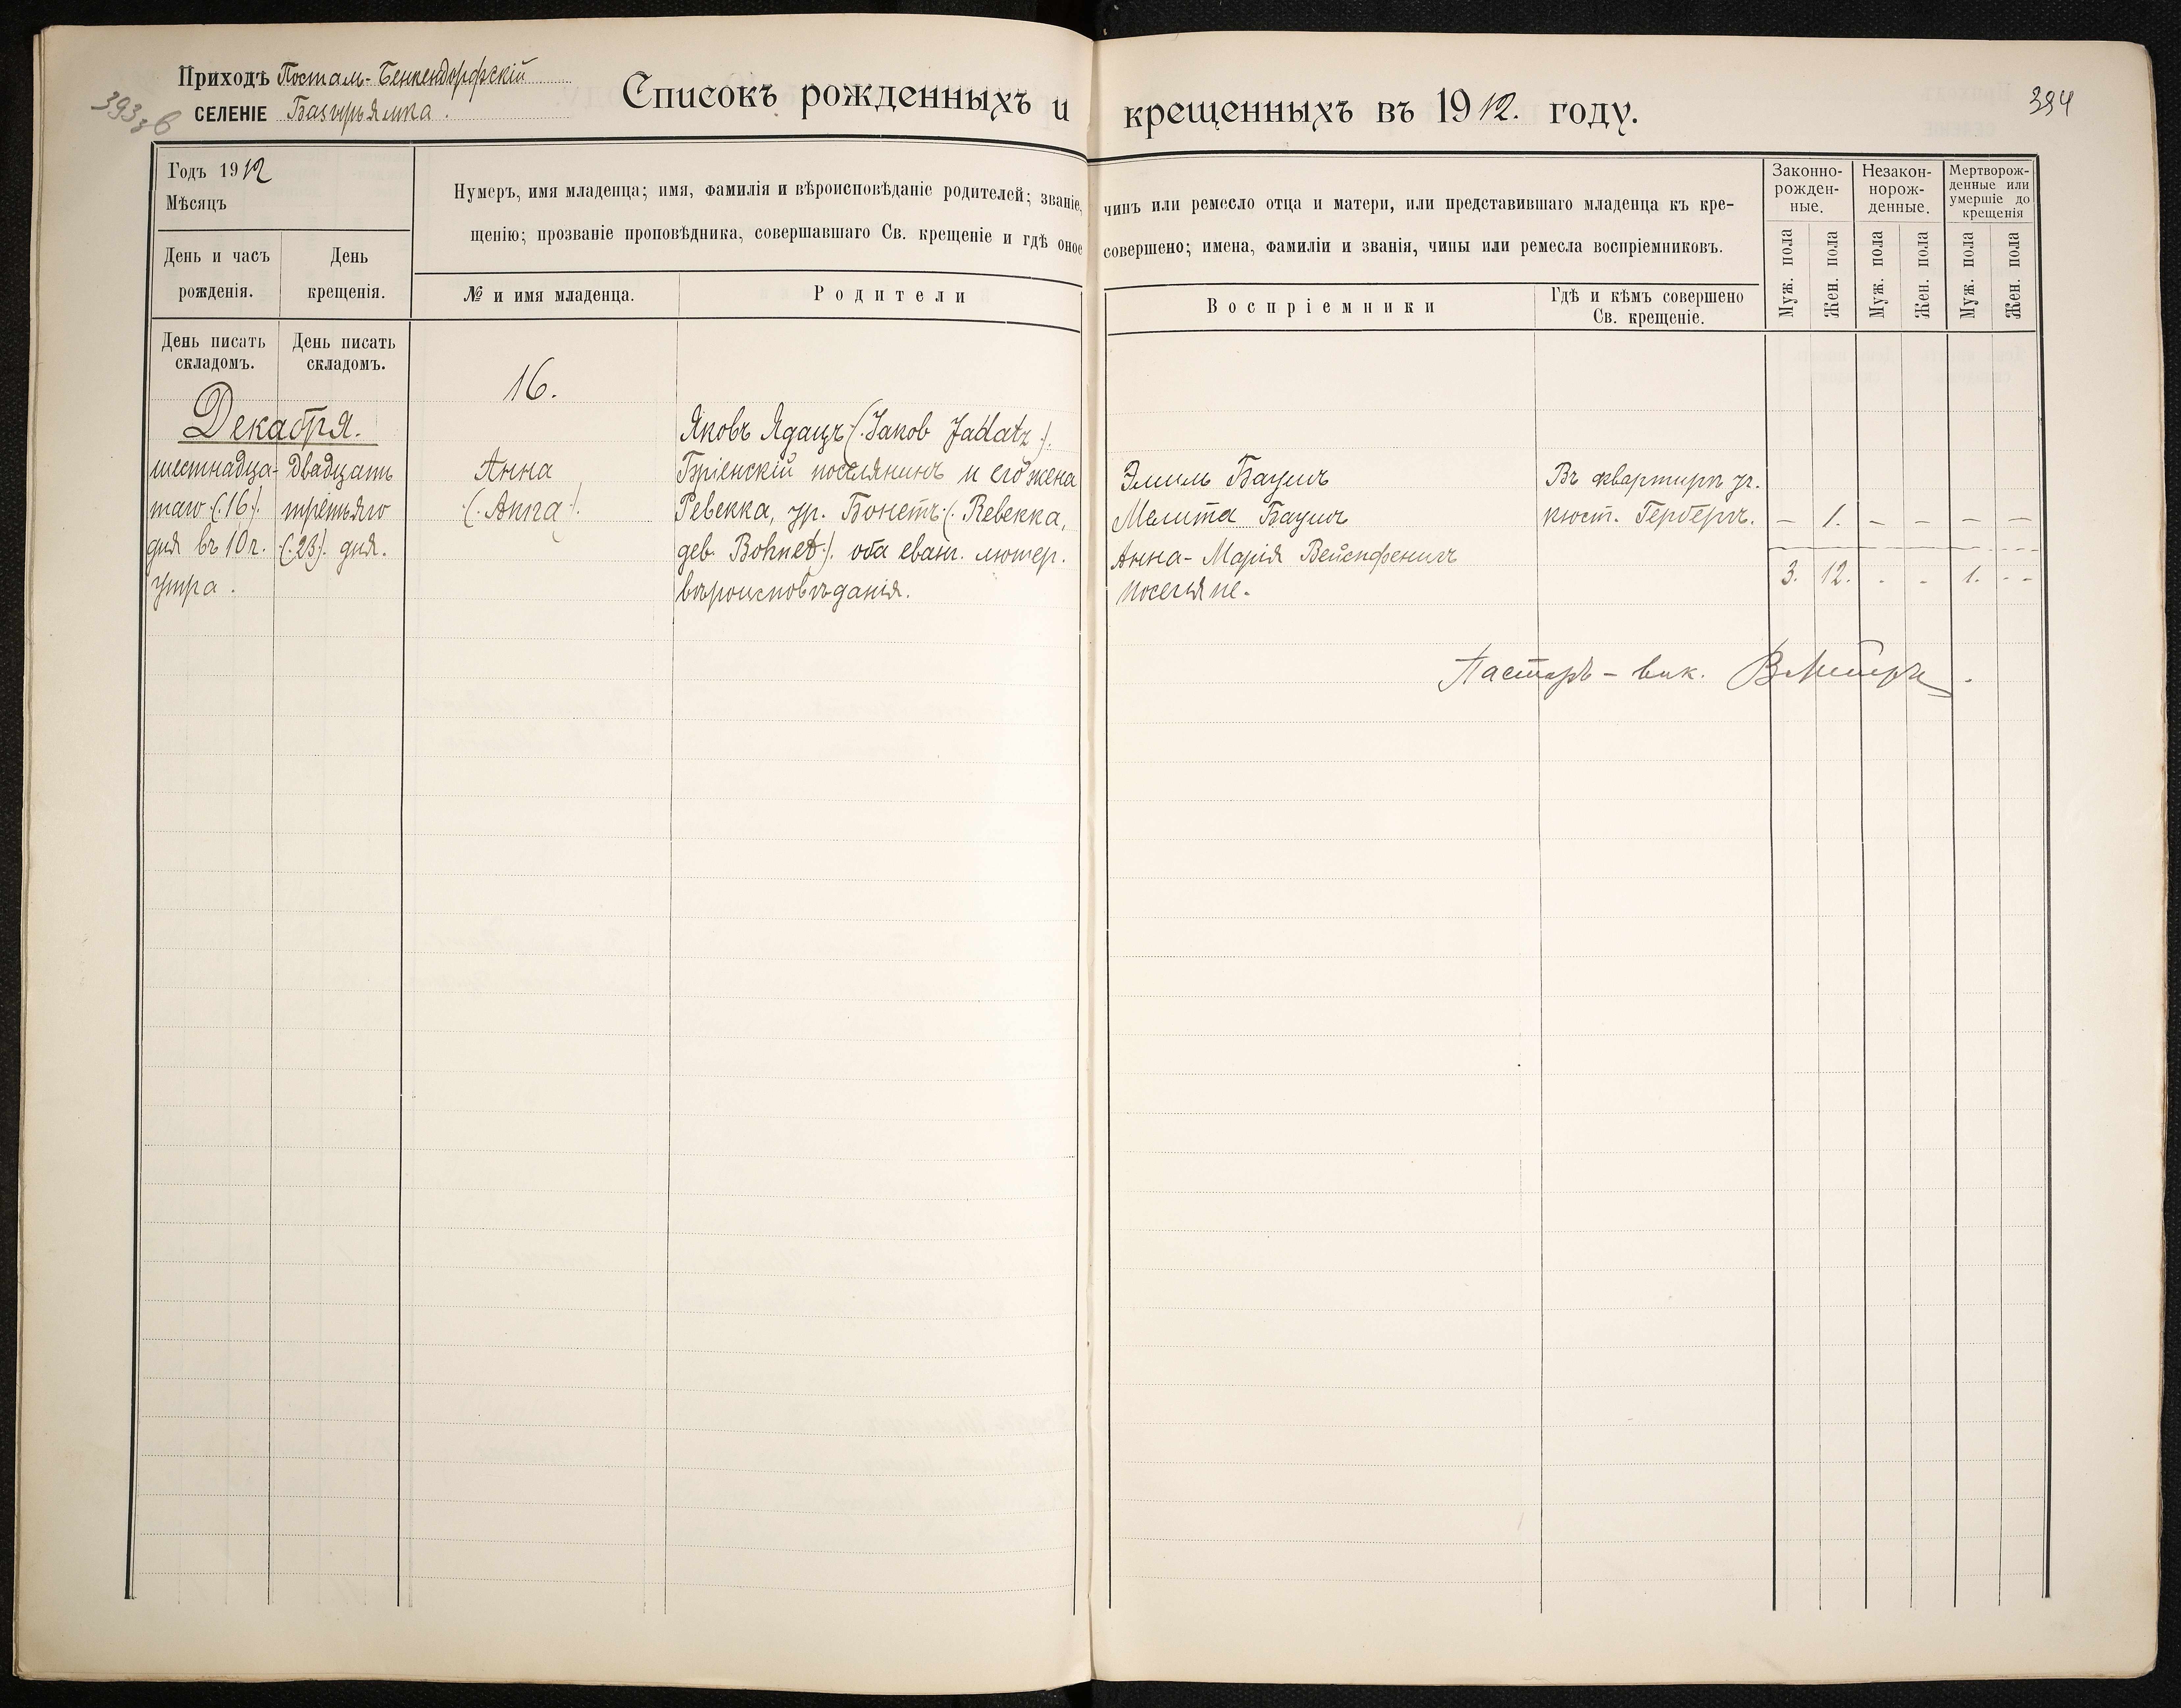 Приходъ Постталь-Бенкендорфскій
СЕЛЕНІЕ Базырьямка.
393
Списокъ рожденныхъ и крещенныхъ въ 1912. году.
394
Годъ 1912
Мѣсяцъ
День и часъ рожденія.
День крещенія.
Нумеръ, имя младенца; имя, фамилія и вѣроисповѣданіе родителей; званіе, чинъ или ремесло отца и матери, или представившаго младенца къ кре-
щенію; прозваніе проповѣдника, совершавшаго Св. крещеніе и гдѣ оное совершено; имена, фамиліи и званія, чины или ремесла воспріемниковъ.
№ и имя младенца.
Родители
Воспріемники
Гдѣ и кѣмъ совершено
Св. крещеніе.
Законно-
рожден-
ные.
Незакон-
норож-
денные.
Мертворож-
денные или
умершіе до
крещенія
Муж. пола
Жен. пола
Муж. пола
Жен. пола
Муж. пола
Жен. пола
День писать
складомъ.
День писать
складомъ.
Декабря.
шестнадца-
таго (.16.).
дня въ 10 ч.
утра.
двадцать
третьяго
(.23). дня.
16.
Анна
(. Anna .).
Яковъ Ядацъ (. Jakob Jadatz .).
Бріенскій поселянинъ и его жена
Ревекка, ур. Бонетъ (. Rebekka,
geb. Bohnet .). оба еванг. лютер.
вѣроисповѣданія.
Эмиль Баушъ
Мелита Баушъ
Анна-Марія Вейспфенигъ
поселяне.
Въ квартирѣ уч.
кюст. Герберъ.
– 1. – – – –
3. 12. - - 1. - -
Пасторъ - вик.